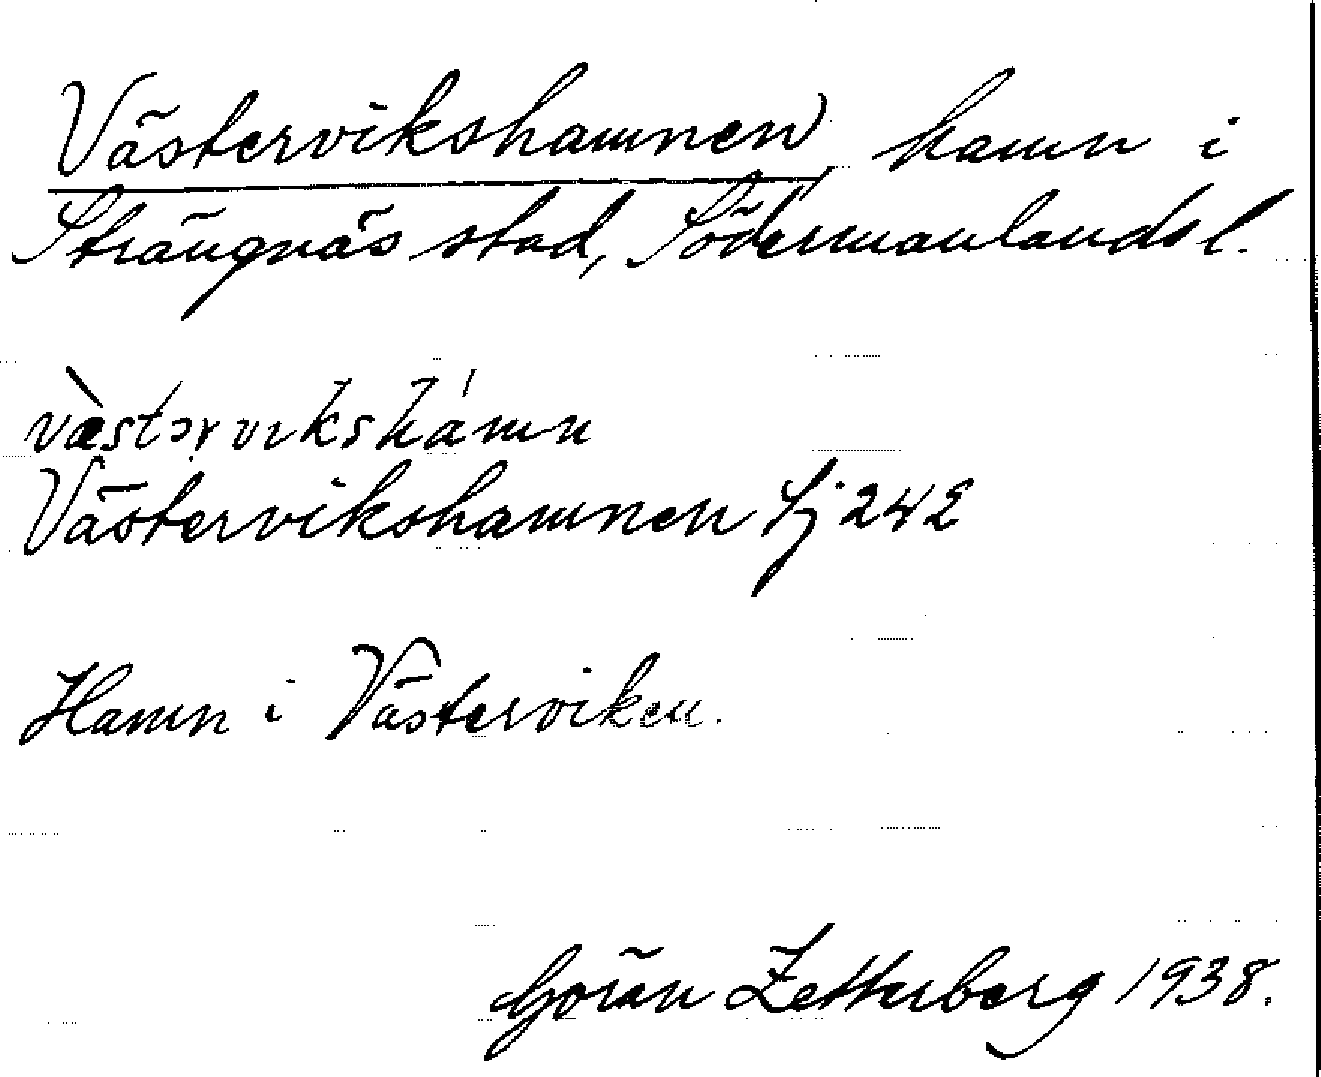 Västervikshamnen hamn i
Strängnäs stad, Södermanlands l.
væ̀stərvikshámn
Västervikshamnen Lj 242
Hamn i Västerviken.
Göran Zetterberg 1938.